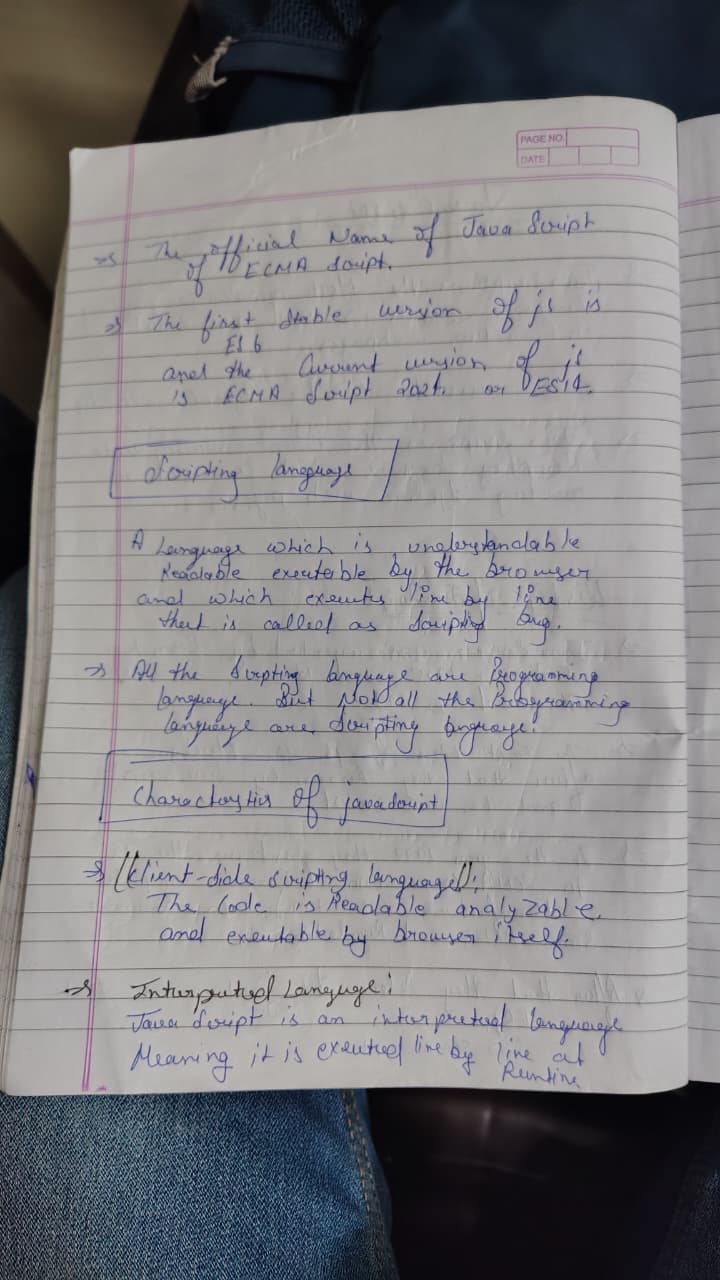 PAGE NO.
DATE
The official Name of Java Script
of ECMA Script.
The first stable version of js is
ES6
and the Current version of js
is ECMA Script 2024 or ES14.
Scripting language
A Language which is understandable
Readable executable by the browser
and which executes line by line
that is called as Scripting lang.
All the Scripting language are Programming
language. But Not all the Programming
language are Scripting language.
Characteristics of javascript
Client-side scripting language:
The Code is Readable analyzable.
and executable by browser itself.
Interpreted Language:
Java Script is an interpreted language
Meaning it is executed line by line at
Runtime